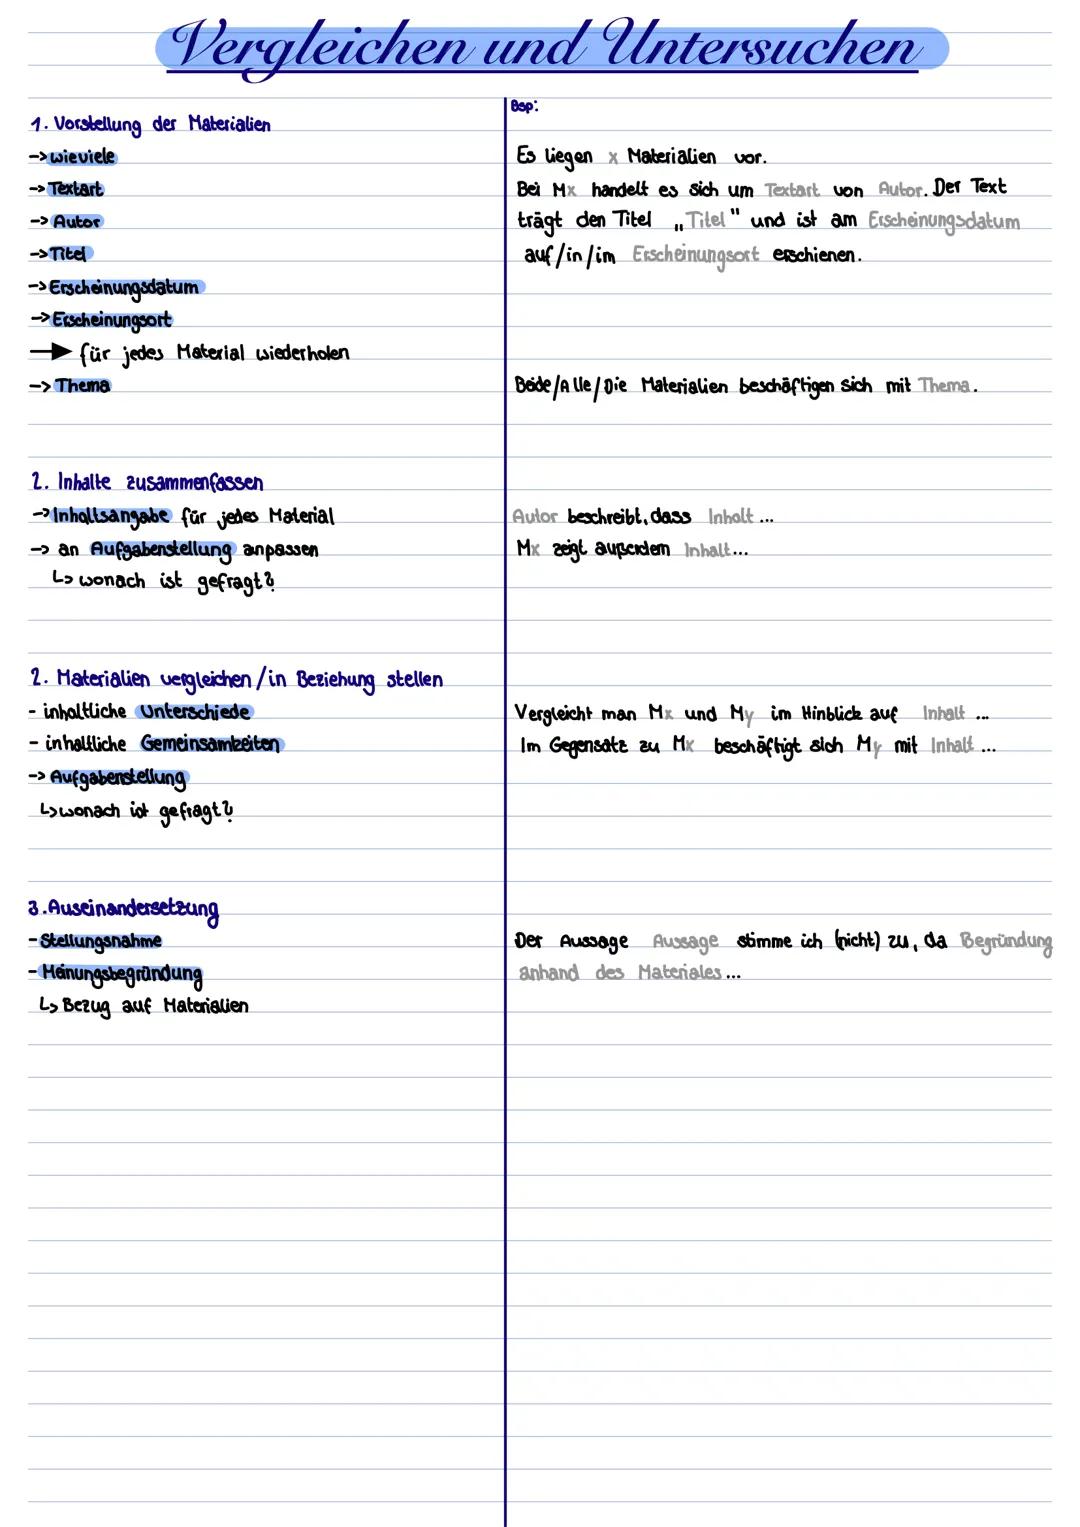 Vergleichen und Untersuchen
Bsp:
1. Vorstellung der Materialien
-> wieviele
Es liegen x Materialien vor.
-> Textart
Bei Mx handelt es sich um Textart von Autor. Der Text
-> Autor
trägt den Titel „Titel" und ist am Erscheinungsdatum
-> Titel
auf/in/im Erscheinungsort erschienen.
-> Erscheinungsdatum
-> Erscheinungsort
→ für jedes Material wiederholen
-> Thema
Beide/Alle/Die Materialien beschäftigen sich mit Thema.
2. Inhalte zusammenfassen
-> Inhaltsangabe für jedes Material
Autor beschreibt, dass Inhalt ...
-> an Aufgabenstellung anpassen
Mx zeigt außerdem Inhalt...
↳ wonach ist gefragt?
2. Materialien vergleichen/in Beziehung stellen
- inhaltliche Unterschiede
Vergleicht man Mx und My im Hinblick auf Inhalt ...
- inhaltliche Gemeinsamkeiten
Im Gegensatz zu Mx beschäftigt sich My mit Inhalt ...
-> Aufgabenstellung
↳ wonach ist gefragt?
3. Auseinandersetzung
- Stellungsnahme
Der Aussage Aussage stimme ich (nicht) zu, da Begründung
- Meinungsbegründung
anhand des Materiales ...
↳ Bezug auf Materialien